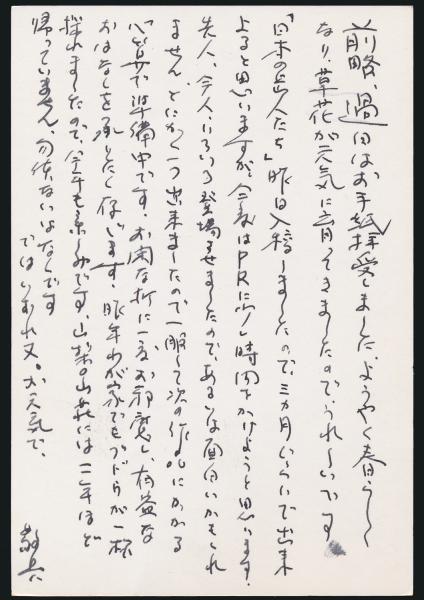 前略、過日はお手紙拝受しました、ようやく春らしく
なり、草花が元気に育ってきましたので、うれしいです
「日本の岳人たち」昨日入稿しましたので、三カ月くらいで出来
よると思いますが、今度はPRに少し時間をかけようと思います。
先人、今人、いろいろ登場させましたので、あるいは面白いかもしれ
ません、とにかく一つ出来ましたので一服して次の作品にかかる
心算で準備中です。お閑な折に一度お邪魔し、有益な
おはなしを承りたく存じます。昨年わが家でもブドウが一杯
採れましたので、今年も楽しみです、山梨の山荘には二年ほど
帰っていません、勿体ないはなしです
ではいずれ又。お元気で、
敬具